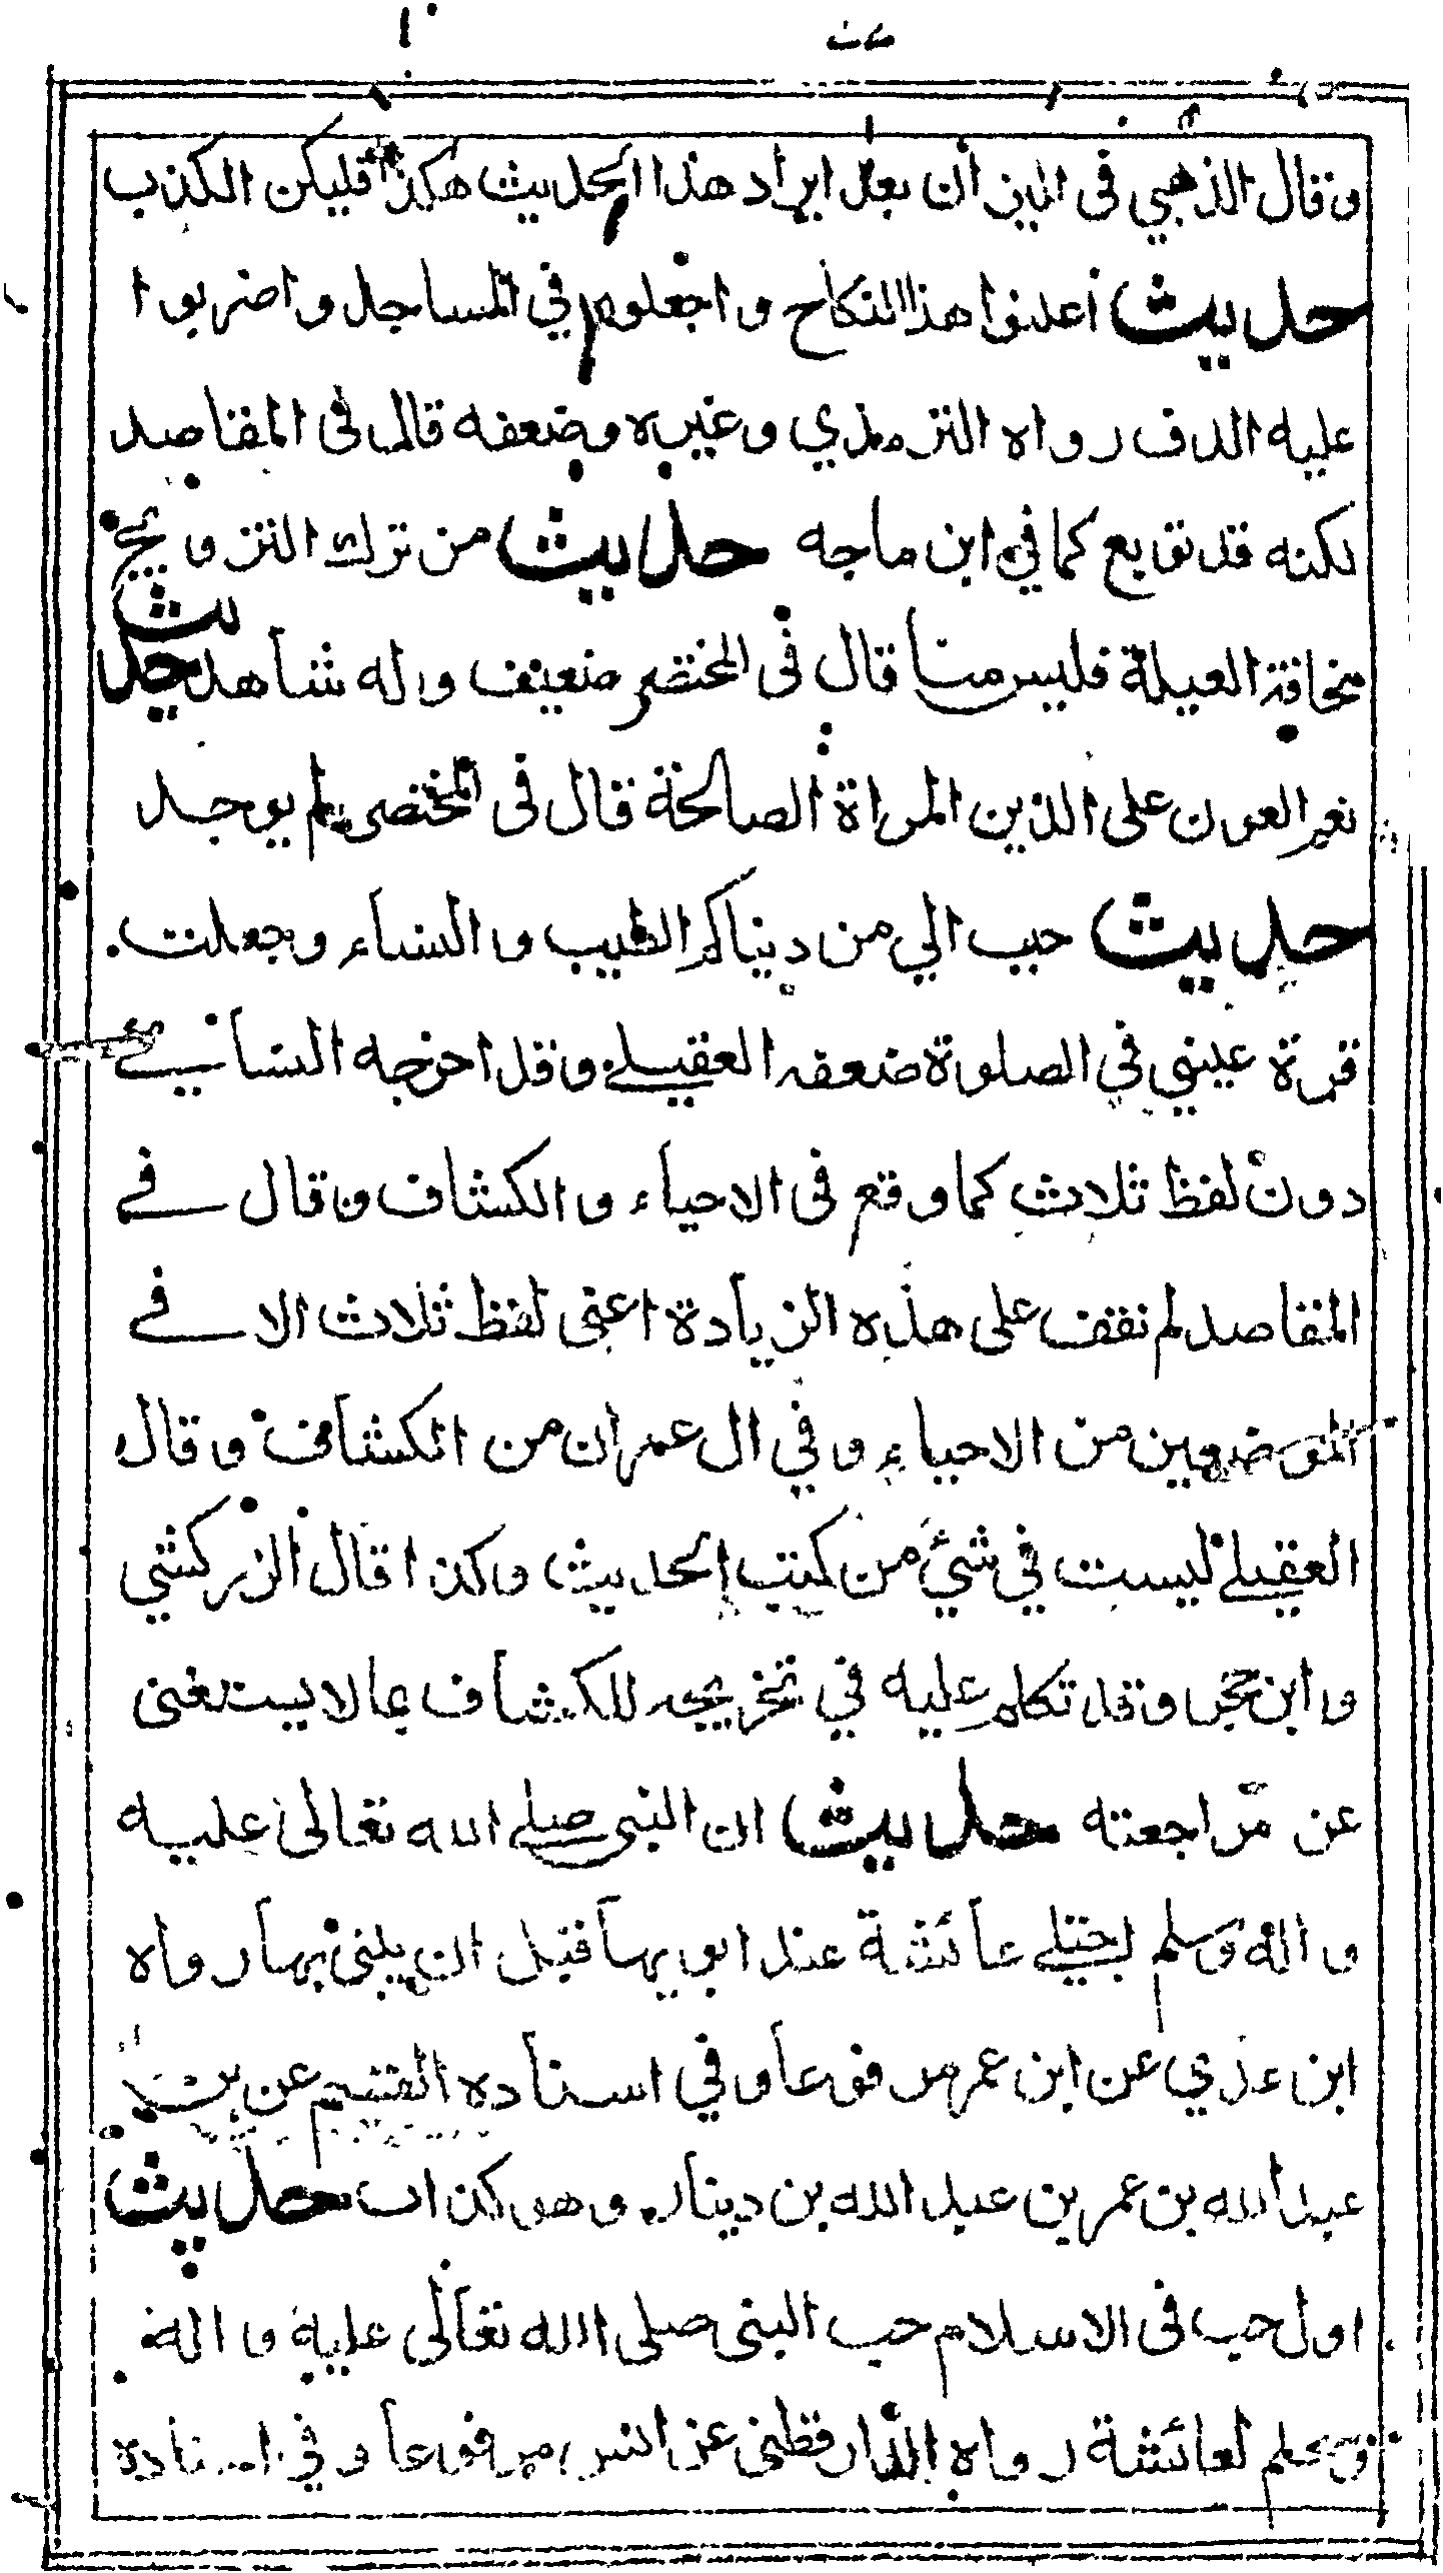 وقال الذهبي في الميزان بعد ايراد هذا الحديث هكذا فليكن الكذب
حديث أعلنوا هذا النكاح واجعلوه في المساجد واضربوا
عليه الدف رواه الترمذي وغيره وضعفه قال في المقاصد
لكنه قد توبع كما في ابن ماجه حديث من ترك التزويج
مخافة العيلة فليس منا قال في المختصر ضعيف وله شاهد حديث
نعم العون على الدين المراة الصالحة قال في المختصر لم يوجد
حديث حبب الي من دنياكم الطيب والنساء وجعلت
قرة عيني في الصلوة ضعفه العقيلي وقد اخرجه النسائي
دون لفظ ثلاث كما وقع في الاحياء والكشاف وقال في
المقاصد لم نقف على هذه الزيادة اعني لفظ ثلاث الا في
الموضعين من الاحياء وفي ال عمران من الكشاف وقال
العقيلي ليست في شيء من كتب الحديث وكذا قال الزركشي
وابن حجر وقد تكلم عليه في تخريجه للكشاف بما لا يستغنى
عن مراجعته حديث ان النبي صلى الله تعالى عليه
واله وسلم اجتلى عائشة عند ابويها قبل ان يبنى بها رواه
ابن عدي عن ابن عمر مرفوعا وفي اسناده القسم عن
عبد الله بن عمر بن عبد الله بن دينار وهو كذاب حديث
اول حب في الاسلام حب النبي صلى الله تعالى عليه واله
وسلم لعائشة رواه الدارقطني عن انس مرفوعا وفي اسناده